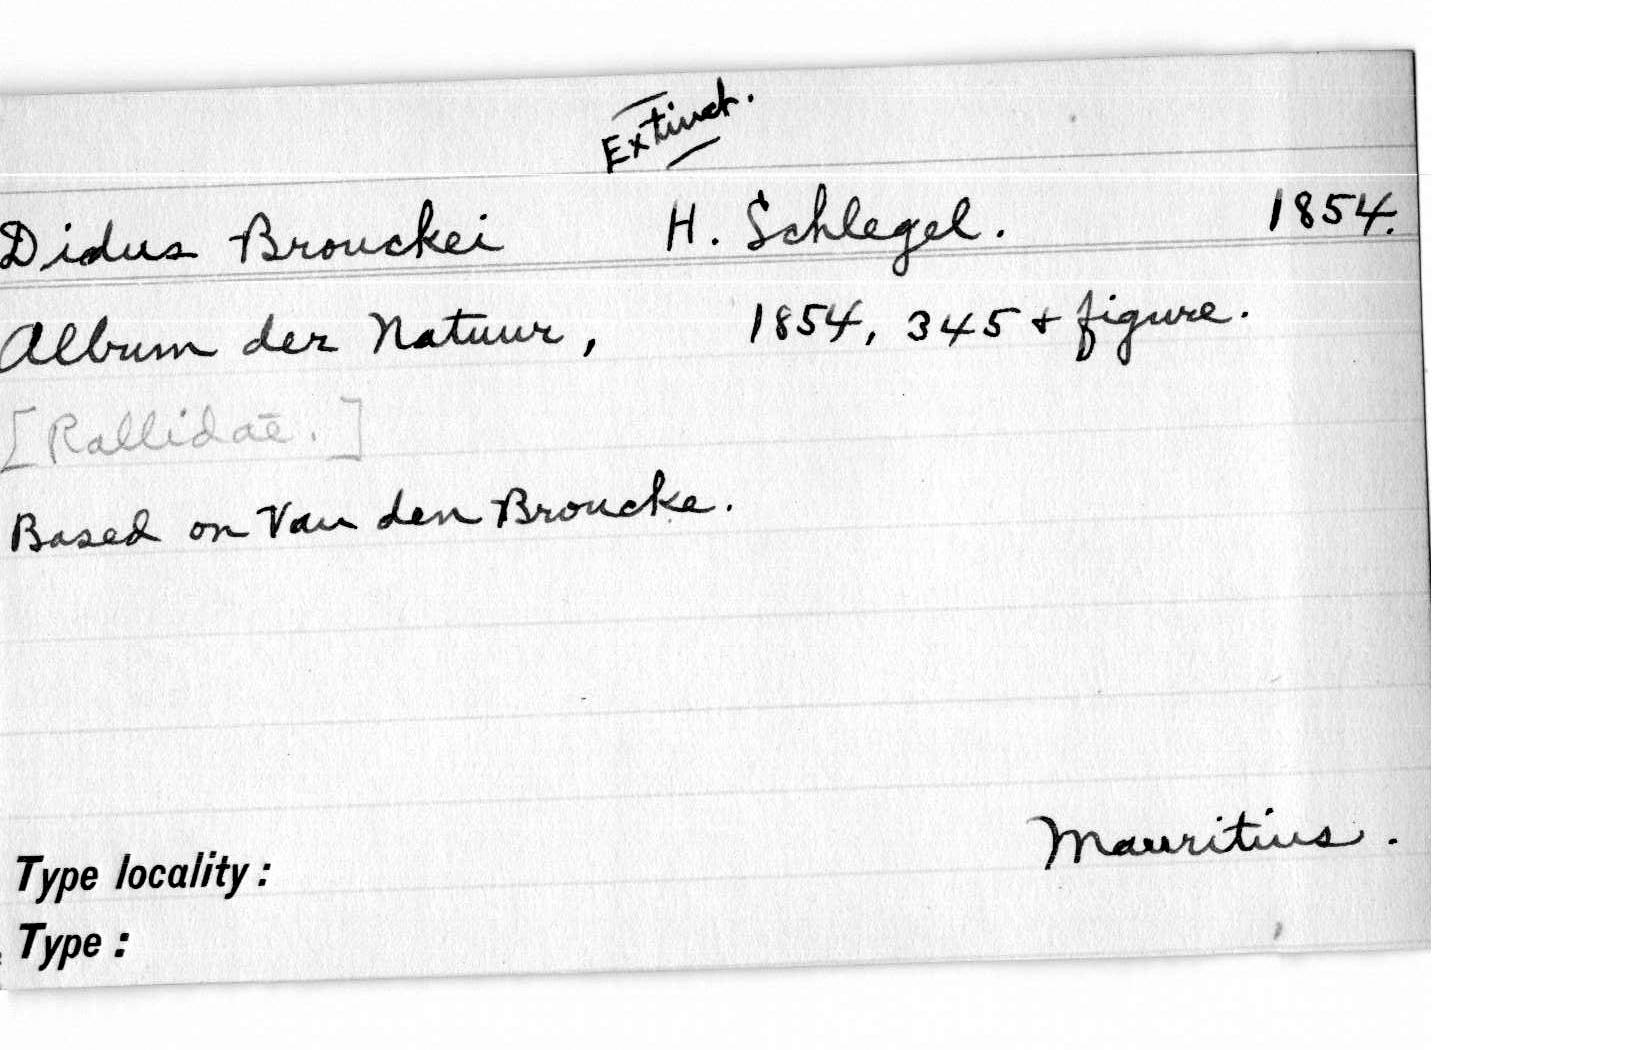 Extinct.
Didus Brouckei H. Schlegel. 1854.
Album der Natuur, 1854, 345 + figure.
[Rallidae.]
Based on Van den Broucke.
Mauritius.
Type locality:
Type: